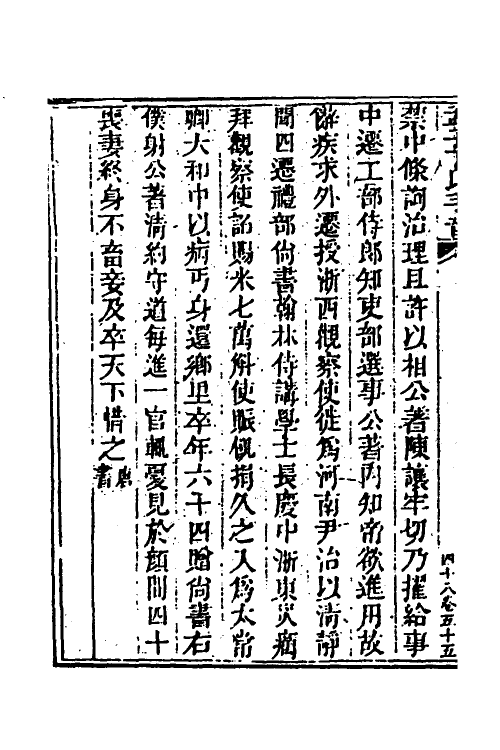 禁中條詞治理且許以相公著陳讓牢切乃擢給事
中遷工部侍郎知吏部選事公著內知帝欲進用故
辭疾求外遷授浙西觀察使徙爲河南尹治以清靜
聞四遷禮部尚書翰林侍講學士長慶中浙東災癘
拜觀察使詔賜米七萬斛使賑饑捐久之入爲太常
卿大和中以病丐身還鄉里卒年六十四贈尚書右
僕射公著清約守道每進一官輒憂見於顏間四十
喪妻終身不畜妾及卒天下惜之唐書
四十八卷五十五